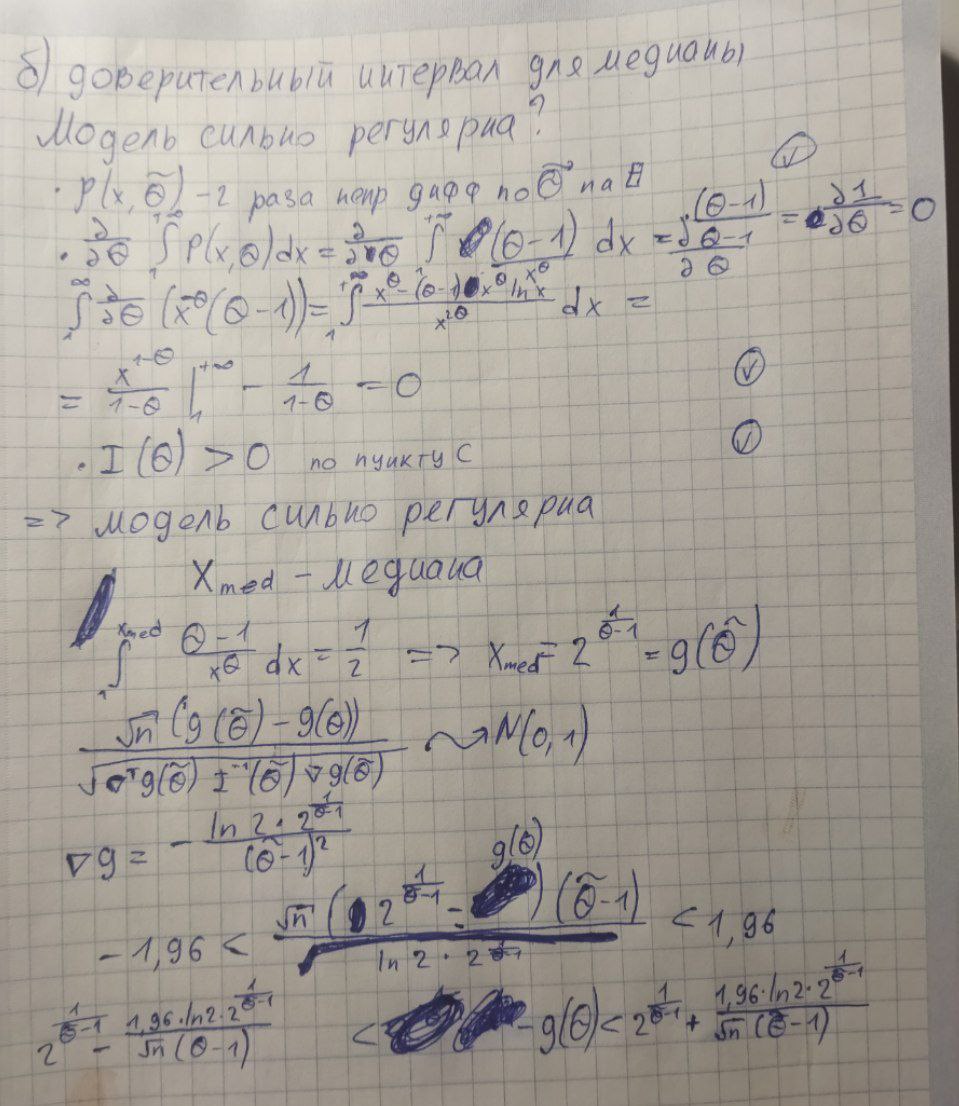 б) доверительный интервал для медианы
Модель сильно регулярна?
· p(x, θ̃) - 2 раза непр дифф по θ̃ на Θ ✓
· ∂/∂θ ∫₁^{+∞} p(x,θ)dx = ∂/∂θ ∫₁^{+∞} (θ-1)/x^θ dx = ∂ (θ-1)/(θ-1) / ∂θ = ∂1/∂θ = 0
∫₁^∞ ∂/∂θ (x^{-θ}(θ-1)) = ∫₁^{+∞} (x^θ - (θ-1) x^θ ln x)/x^{2θ} dx =
= x^{1-θ}/(1-θ) |₁^{+∞} - 1/(1-θ) = 0 ✓
· I(θ) > 0 по пункту c ✓
=> модель сильно регулярна
X_med - медиана
∫₁^{x_med} (θ-1)/x^θ dx = 1/2 => x_med = 2^{1/(θ-1)} = g(θ̃)
√n (g(θ̃) - g(θ)) / √(∇ᵀg(θ̃) I⁻¹(θ̃) ∇g(θ̃)) ⇝ N(0,1)
∇g = - ln2 · 2^{1/(θ̃-1)} / (θ̃-1)²
g(θ)
-1,96 < √n (2^{1/(θ̃-1)} - ) (θ̃-1) / ln2 · 2^{1/(θ̃-1)} < 1,96
2^{1/(θ̃-1)} - 1,96·ln2·2^{1/(θ̃-1)} / √n (θ-1) < - g(θ) < 2^{1/(θ̃-1)} + 1,96·ln2·2^{1/(θ̃-1)} / √n (θ̃-1)